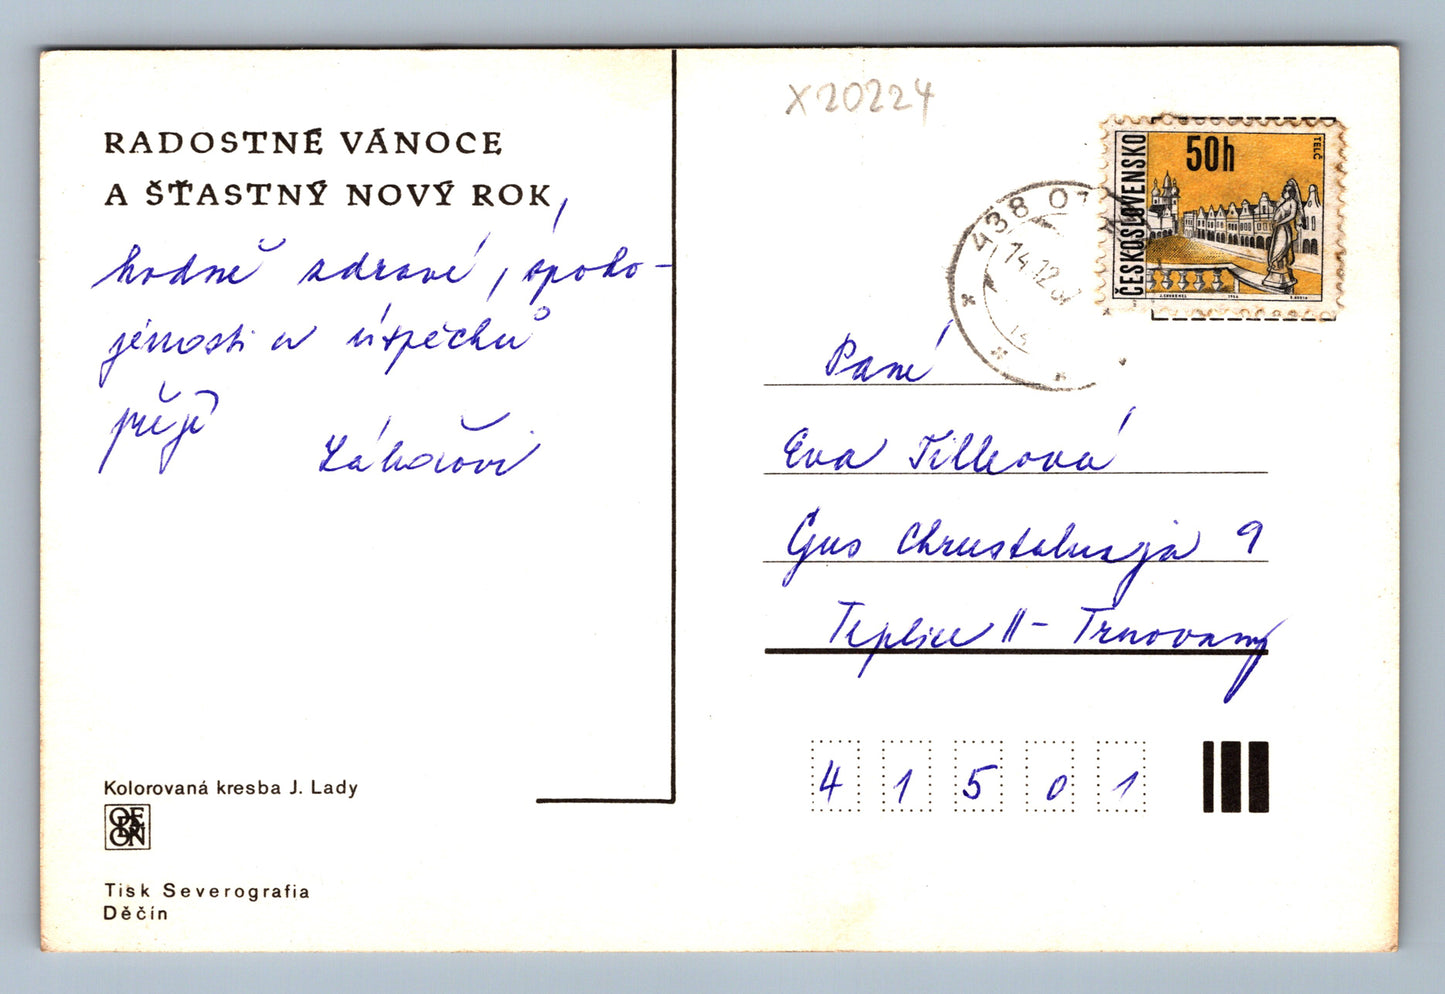 RADOSTNÉ VÁNOCE
A ŠŤASTNÝ NOVÝ ROK,
hodně zdraví, spoko-
jenosti a úspěchů
přejí
X20224
ČESKOSLOVENSKO
50h
TELČ
438 01
14.12.
Paní
Eva
Gus Chrustalusja 9
Teplice II - Trnovany
41501
Kolorovaná kresba J. Lady
ODEON
Tisk Severografia
Děčín